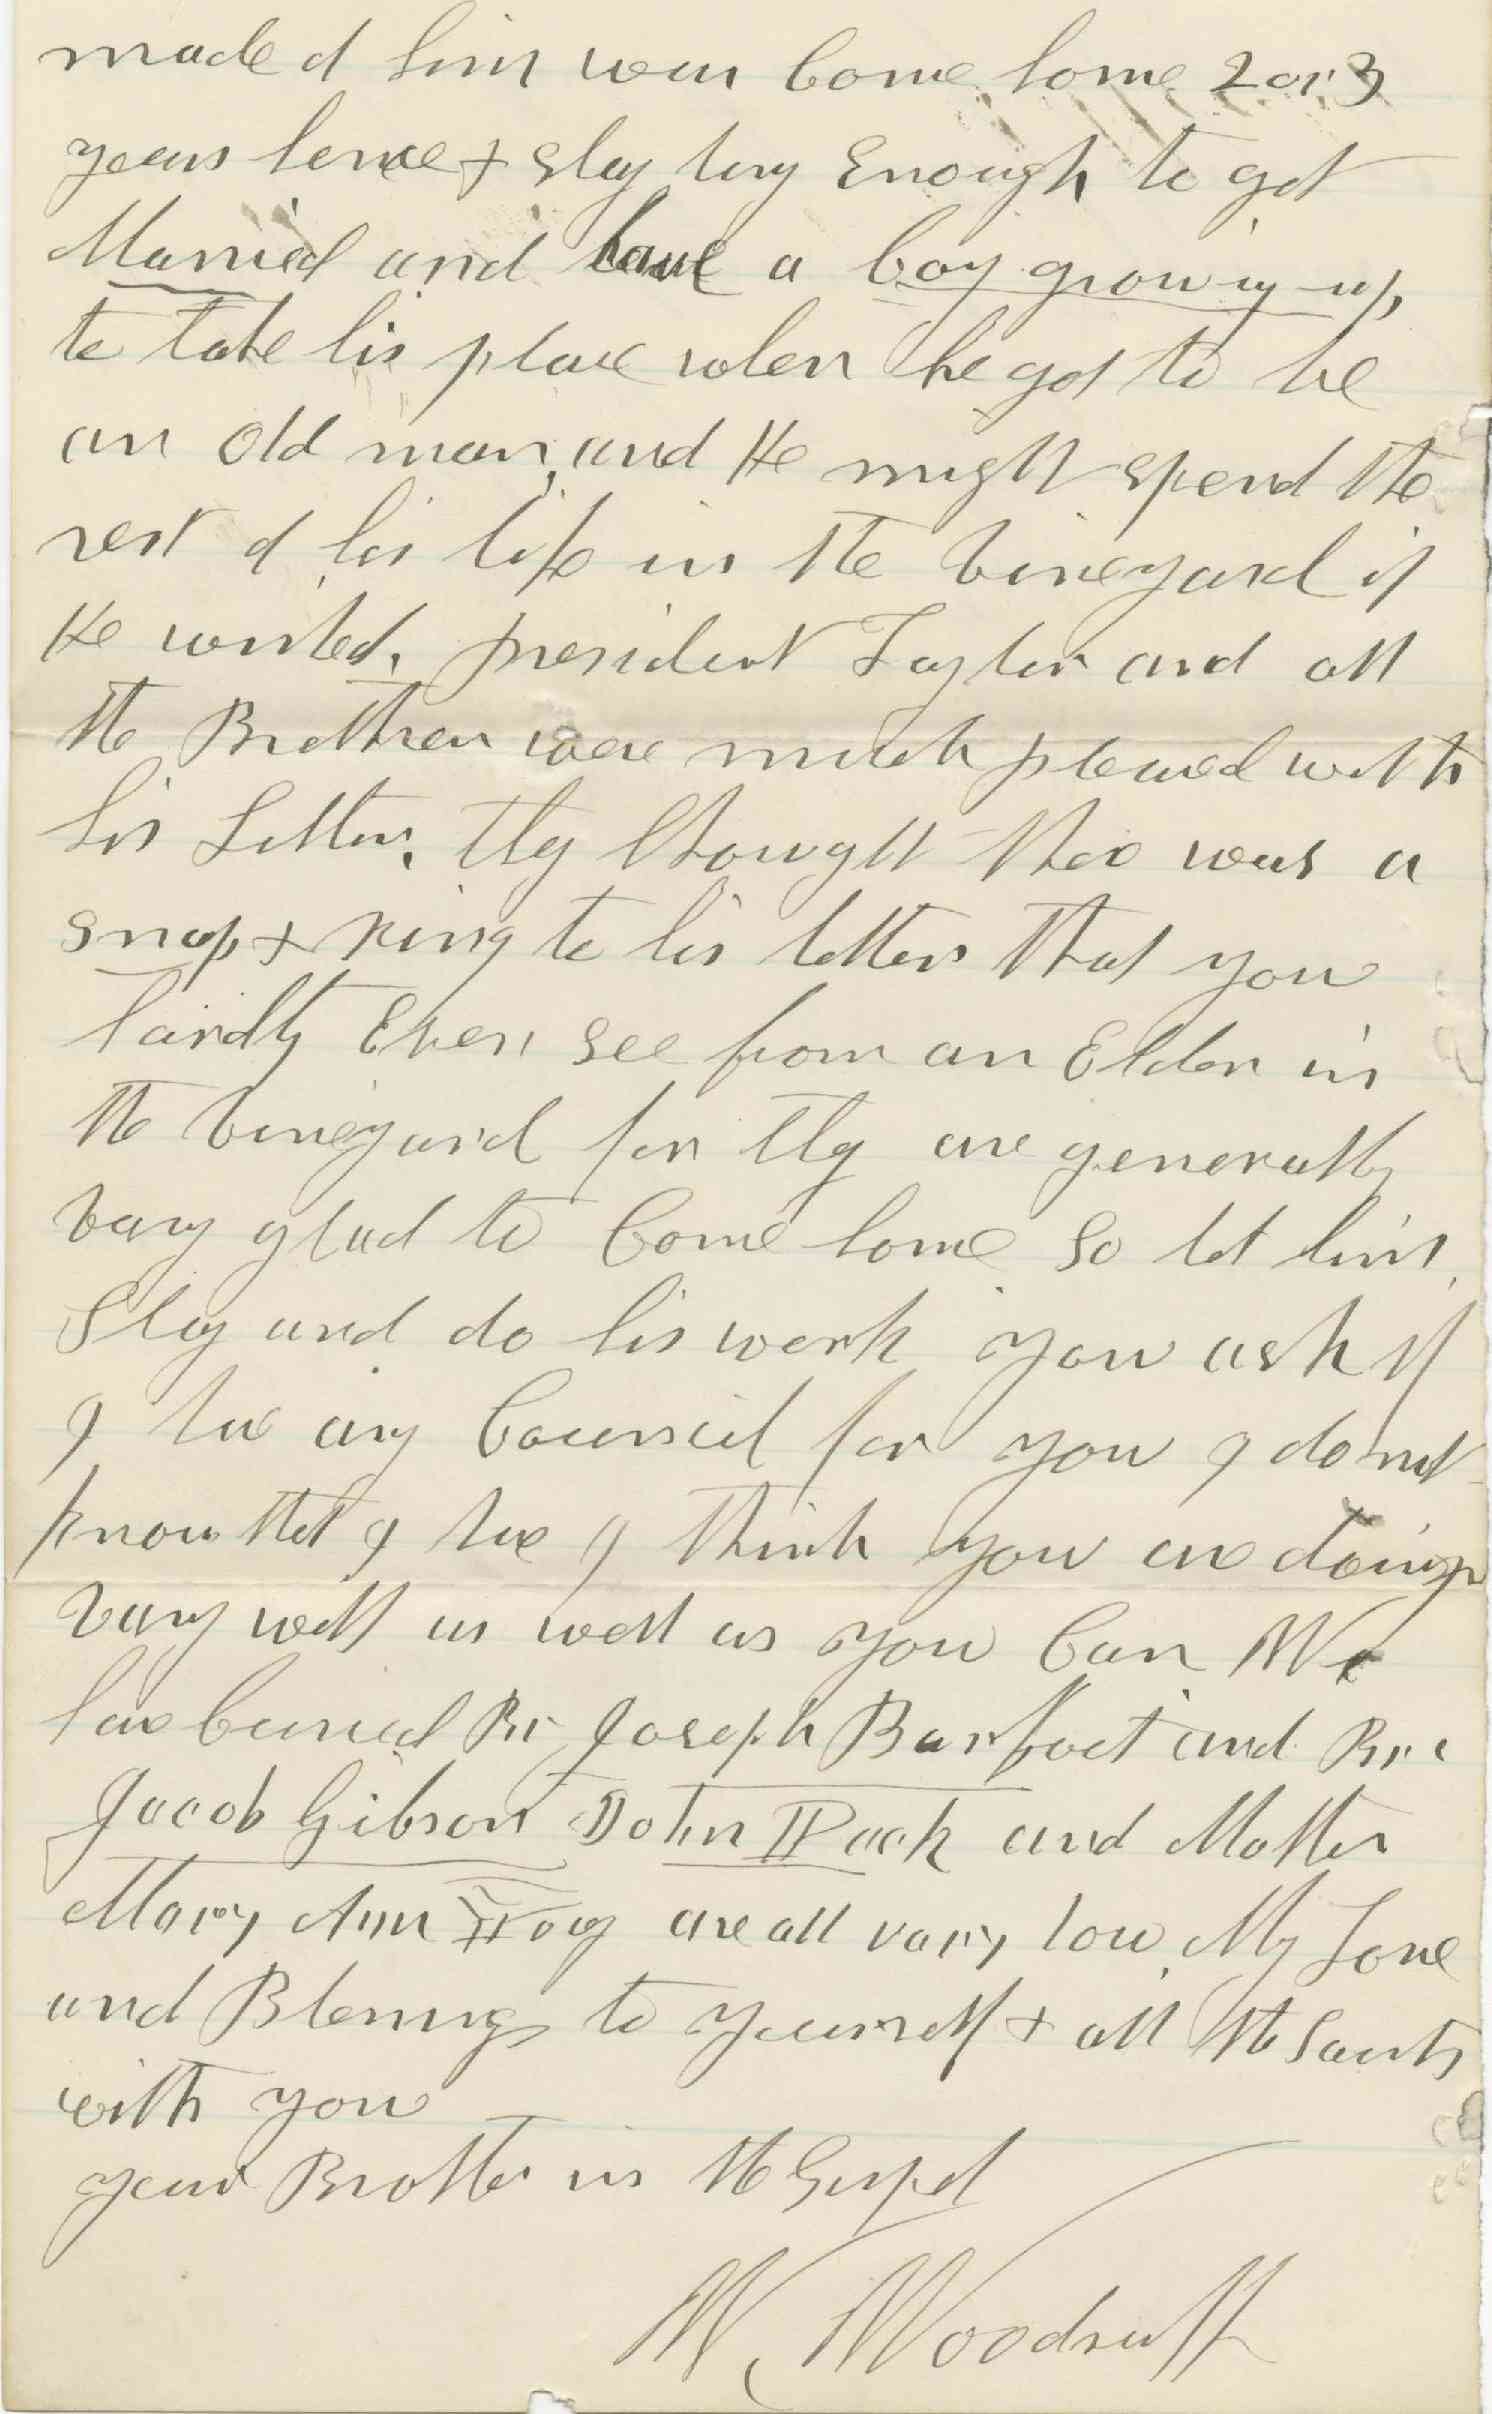 made of him was Come home 2 or 3
years hence & stay long Enough to get
Married and have a boy growing up
to take his place when he got to be
an Old man, and He might spend the
rest of his life in the vineyard if
He wished, president Taylor and all
the Brethren were much pleased with
his Letter, they thought ther was a
snap & ring to his letter that you
hardly Ever see from an Elder in
the vineyard for they are generally
vary glad to Come home So let him
Stay and do his work you ask if
I have any Councel for you I do not
know that I have I think you are doing
vary well as well as you Can We
have buried Br Joseph Barfoot and Br
Jacob Gibson John Pack and Mother
Mary Ann are all vary low My Love
and Blessings to yourself & all the Saints
with you
your Brother in the Gospel
W. Woodruff